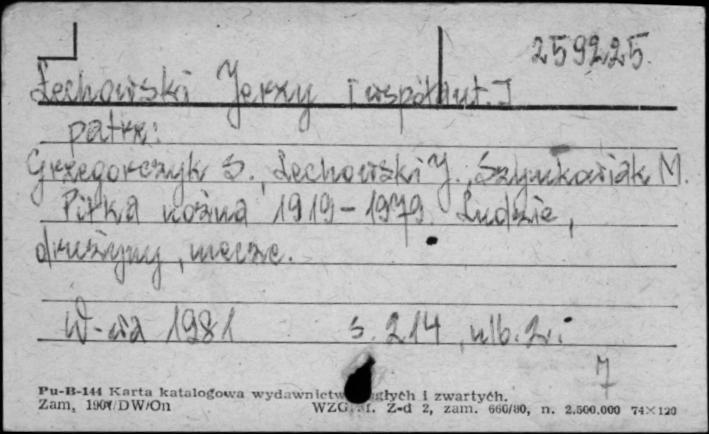 259225.
Lechowski Jerzy [współaut.]
patrz:
Grzegorczyk S., Lechowski J., Szymkowiak M.
Piłka nożna 1919-1979. Ludzie,
drużyny, mecze.
W-wa 1981 s. 214, nlb. 2.
7
Pu-B-144 Karta katalogowa wydawnictw ciągłych i zwartych.
Zam. 190 /DW/On WZGraf. Z-d 2, zam. 660/80, n. 2.500.000 74×120